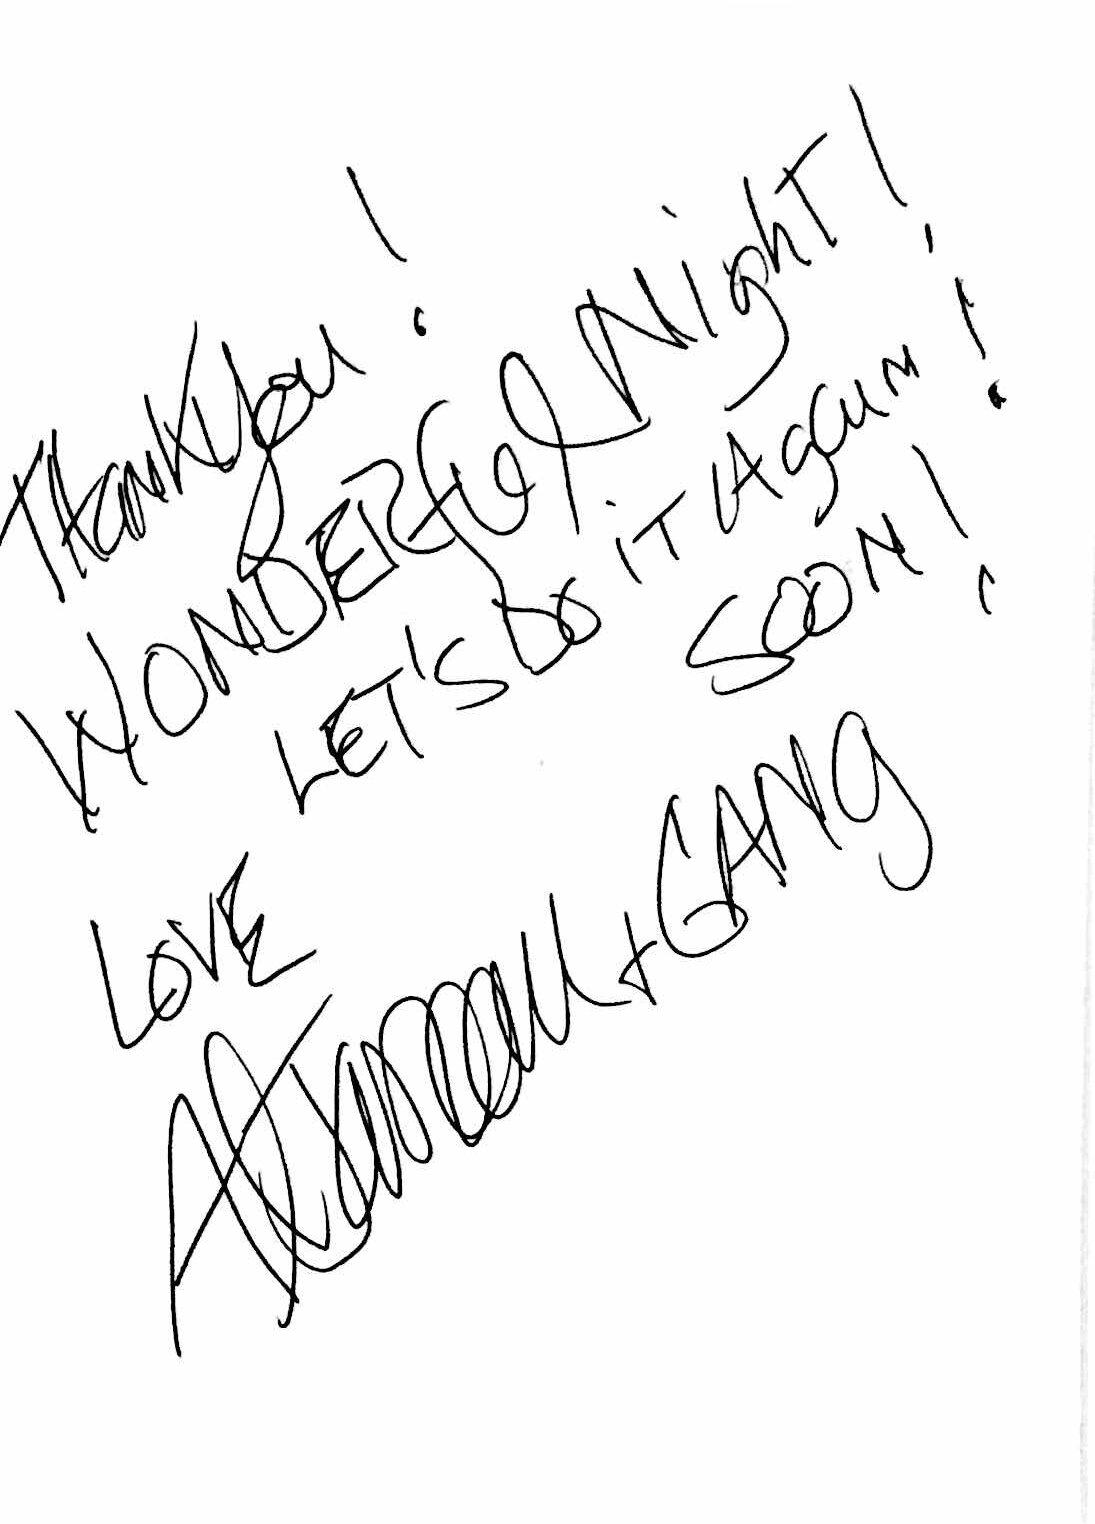 Thank You!
WONDERful Night!
LET'S DO iT Again!
SOON!
LOVE
+ GANG